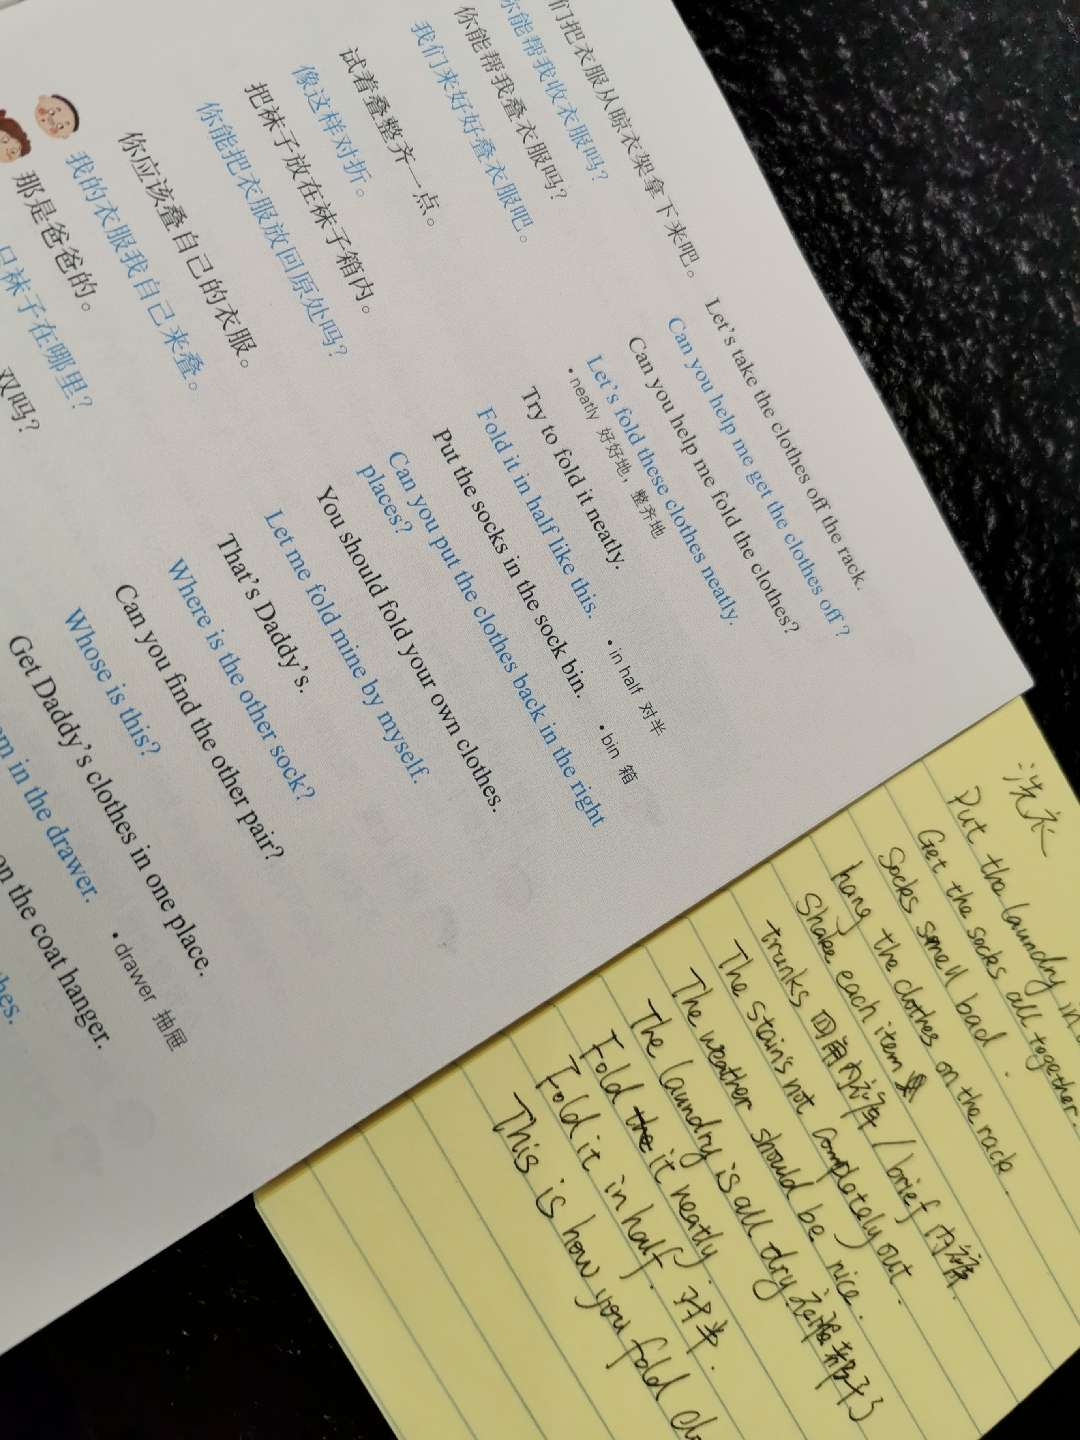 们把衣服从晾衣架拿下来吧。 Let's take the clothes off the rack.
你能帮我收衣服吗? Can you help me get the clothes off?
你能帮我叠衣服吗? Can you help me fold the clothes?
我们来好好叠衣服吧。 Let's fold these clothes neatly.
• neatly 好好地，整齐地
试着叠整齐一点。 Try to fold it neatly.
像这样对折。 Fold it in half like this. • in half 对半
把袜子放在袜子箱内。 Put the socks in the sock bin. • bin 箱
你能把衣服放回原处吗? Can you put the clothes back in the right
places?
你应该叠自己的衣服。 You should fold your own clothes.
我的衣服我自己来叠。 Let me fold mine by myself.
那是爸爸的。 That's Daddy's.
只袜子在哪里? Where is the other sock?
双吗? Can you find the other pair?
Whose is this?
Get Daddy's clothes in one place.
in the drawer. • drawer 抽屉
on the coat hanger.
洗衣
Put the laundry in
Get the socks all together.
Socks smell bad.
hang the clothes on the rack.
Shake each item
trunks 四角内裤 / brief 内裤.
The stain's not completely out.
The weather should be nice.
The laundry is all dry
Fold it neatly.
Fold it in half. 对半.
This is how you fold